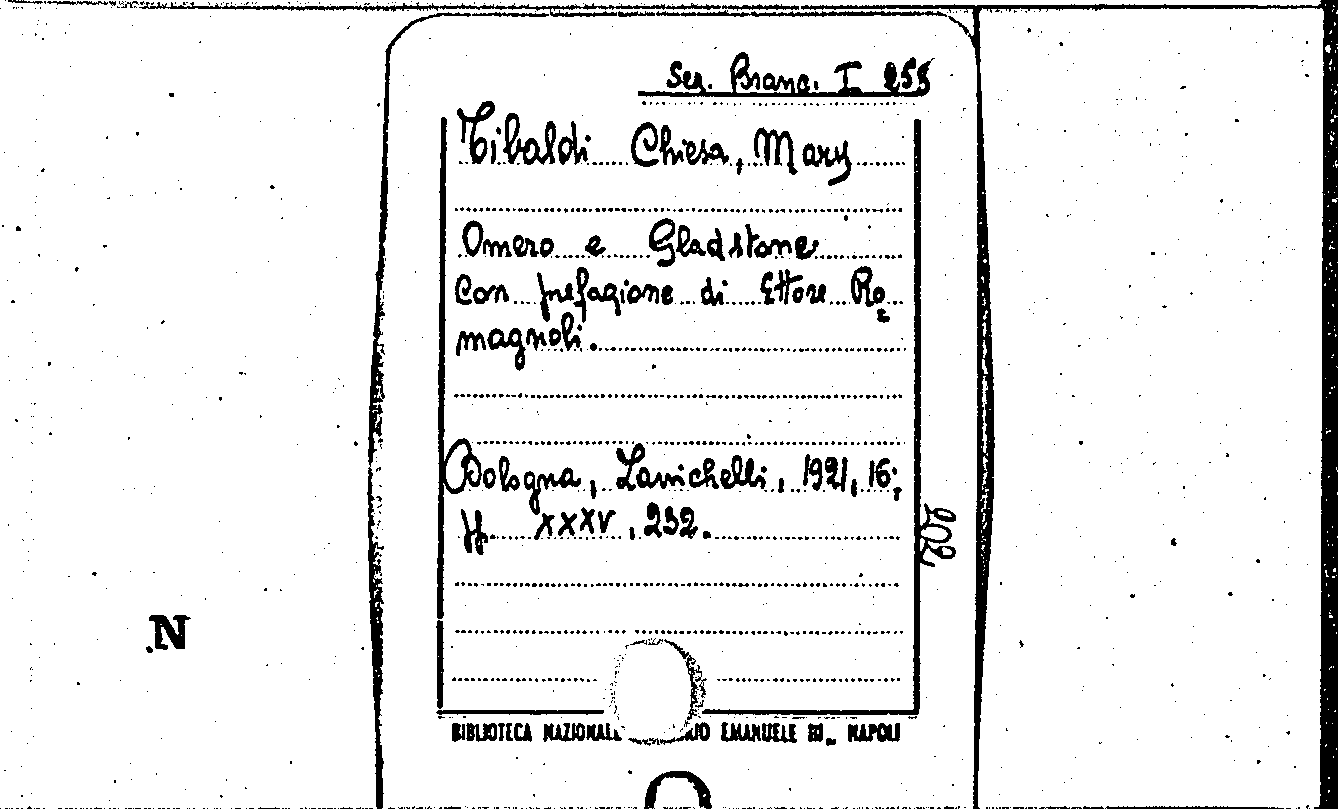 Ser. Branc. I 255
Tibaldi Chiesa, Mary
Omero e Gladstone
Con prefazione di Ettore Ro=
magnoli.
Bologna, Zanichelli, 1921, 16;
pp. XXXV, 232.
N
BIBLIOTECA NAZIONALE EMANUELE III - NAPOLI